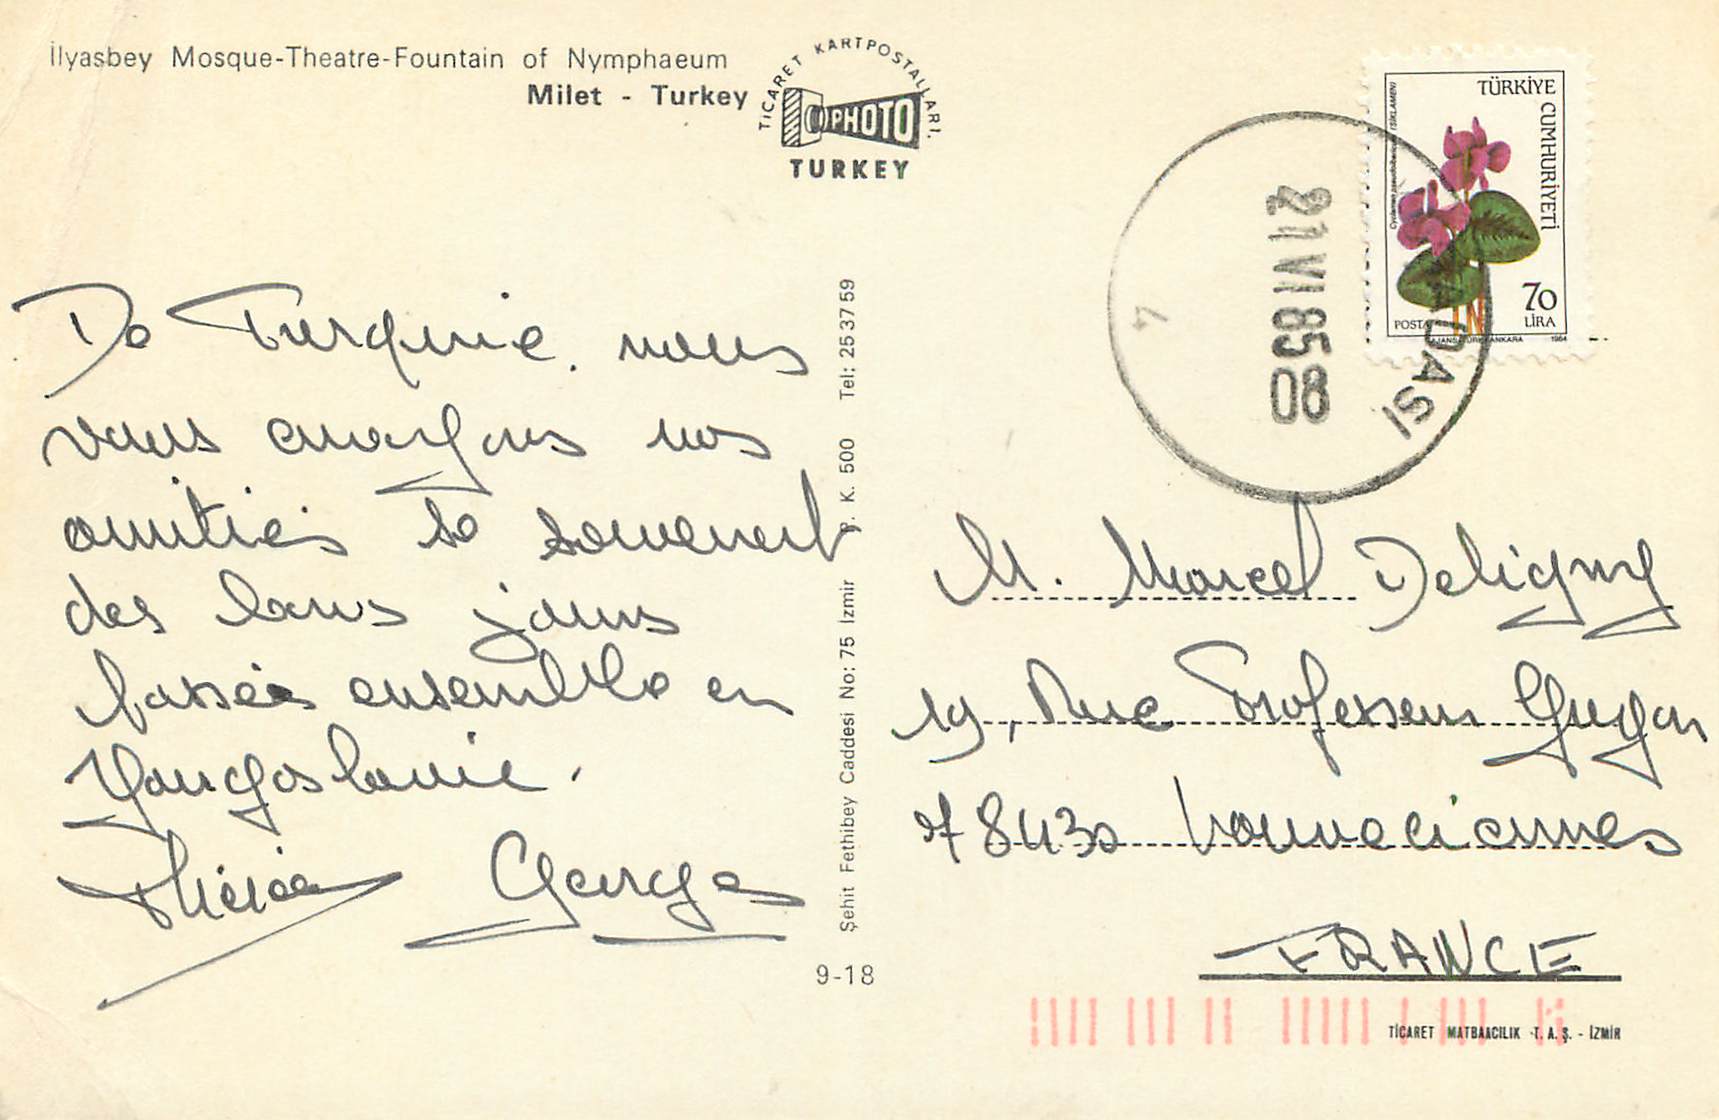 İlyasbey Mosque-Theatre-Fountain of Nymphaeum
Milet - Turkey
TİCARET KARTPOSTALLARI.
PHOTO
TURKEY
TÜRKİYE CUMHURİYETİ
70
LİRA
POSTA
AJANS-TÜRK/ANKARA 1984
21 VI 85 08
4
ADASI
De Turquie, nous
vous envoyons nos
amitiés le souvenir
des bons jours
passés ensemble en
Yougoslavie.
Georges
Şehit Fethibey Caddesi No: 75 İzmir P. K. 500 Tel: 25 37 59
9-18
M. Marcel Deligny
19, Rue Professeur Guyon
78430 Louveciennes
FRANCE
TİCARET MATBAACILIK T. A. Ş. - İZMİR